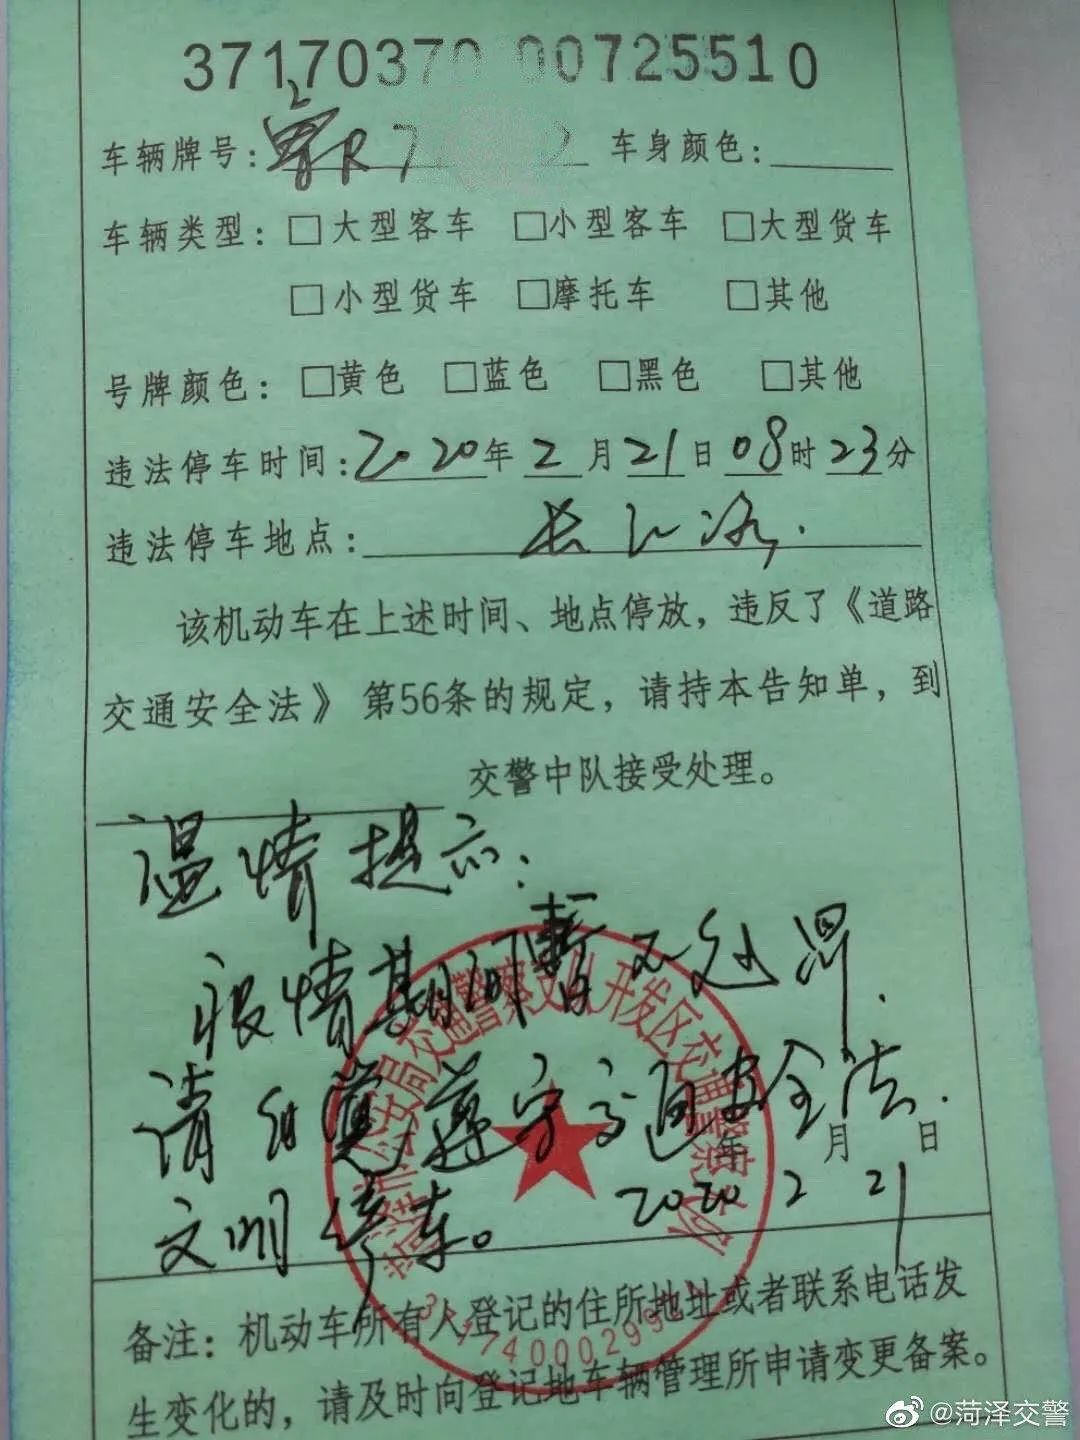 37170370 00725510
车辆牌号:鲁R7 2 车身颜色:
车辆类型: □大型客车 □小型客车 □大型货车
□小型货车 □摩托车 □其他
号牌颜色: □黄色 □蓝色 □黑色 □其他
违法停车时间:2020年2月21日08时23分
违法停车地点: 长江路.
该机动车在上述时间、地点停放，违反了《道路
交通安全法》第56条的规定，请持本告知单，到
交警中队接受处理。
温情提示:
疫情期间暂不处罚.
请自觉遵守交通安全法.
年 月 日
文明停车。 2020 2 21
菏泽市公安局交通警察支队开发区交通警察大队
备注: 机动车所有人登记的住所地址或者联系电话发
生变化的，请及时向登记地车辆管理所申请变更备案。
@菏泽交警